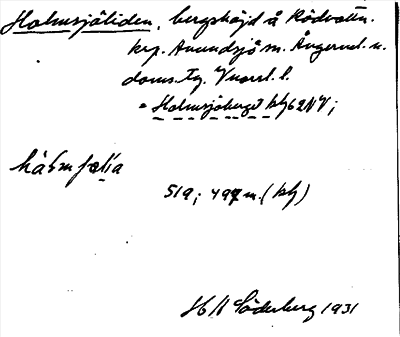 Holmsjöliden, bergshöjd å Rödvattn.
krp. Anundsjö sn. Ångerml. n.
doms. tg. Vnorrl. l.
= Holmsjöberget kbl 62 NV;
hå̀ɫmʃølía
519; 497 m. (kbl)
H. Söderberg 1931